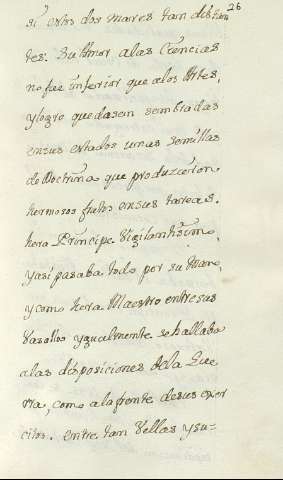 26
si estos dos mares tan distan
tes. Su Amor a las Ciencias
no fue inferior que a los Artes,
y logro quedasen sembradas
en sus estados unas semillas
de Doctrina que produxeron
hermosos frutos en sus tareas.
hera Principe Vigilantisimo,
y asi pasaba todo por su mano,
y como hera Maestro entre sus
Vasallos ygualmente se hallaba
a las disposiciones de la Gue
rra, como a la frente de sus exer
citos. entre tan bellas y su=